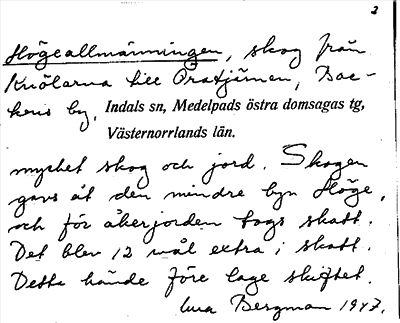 3
Högeallmänningen, skog från
Knölarna till Oratjärnen, Bac-
kens by, Indals sn, Medelpads östra domsagas tg,
Västernorrlands län.
mycket skog och jord. Skogen
gavs åt den mindre byn Höge,
och för åkerjorden togs skatt.
Det blev 12 mål extra i skatt.
Detta hände före laga skiftet.
Bergman 1947.